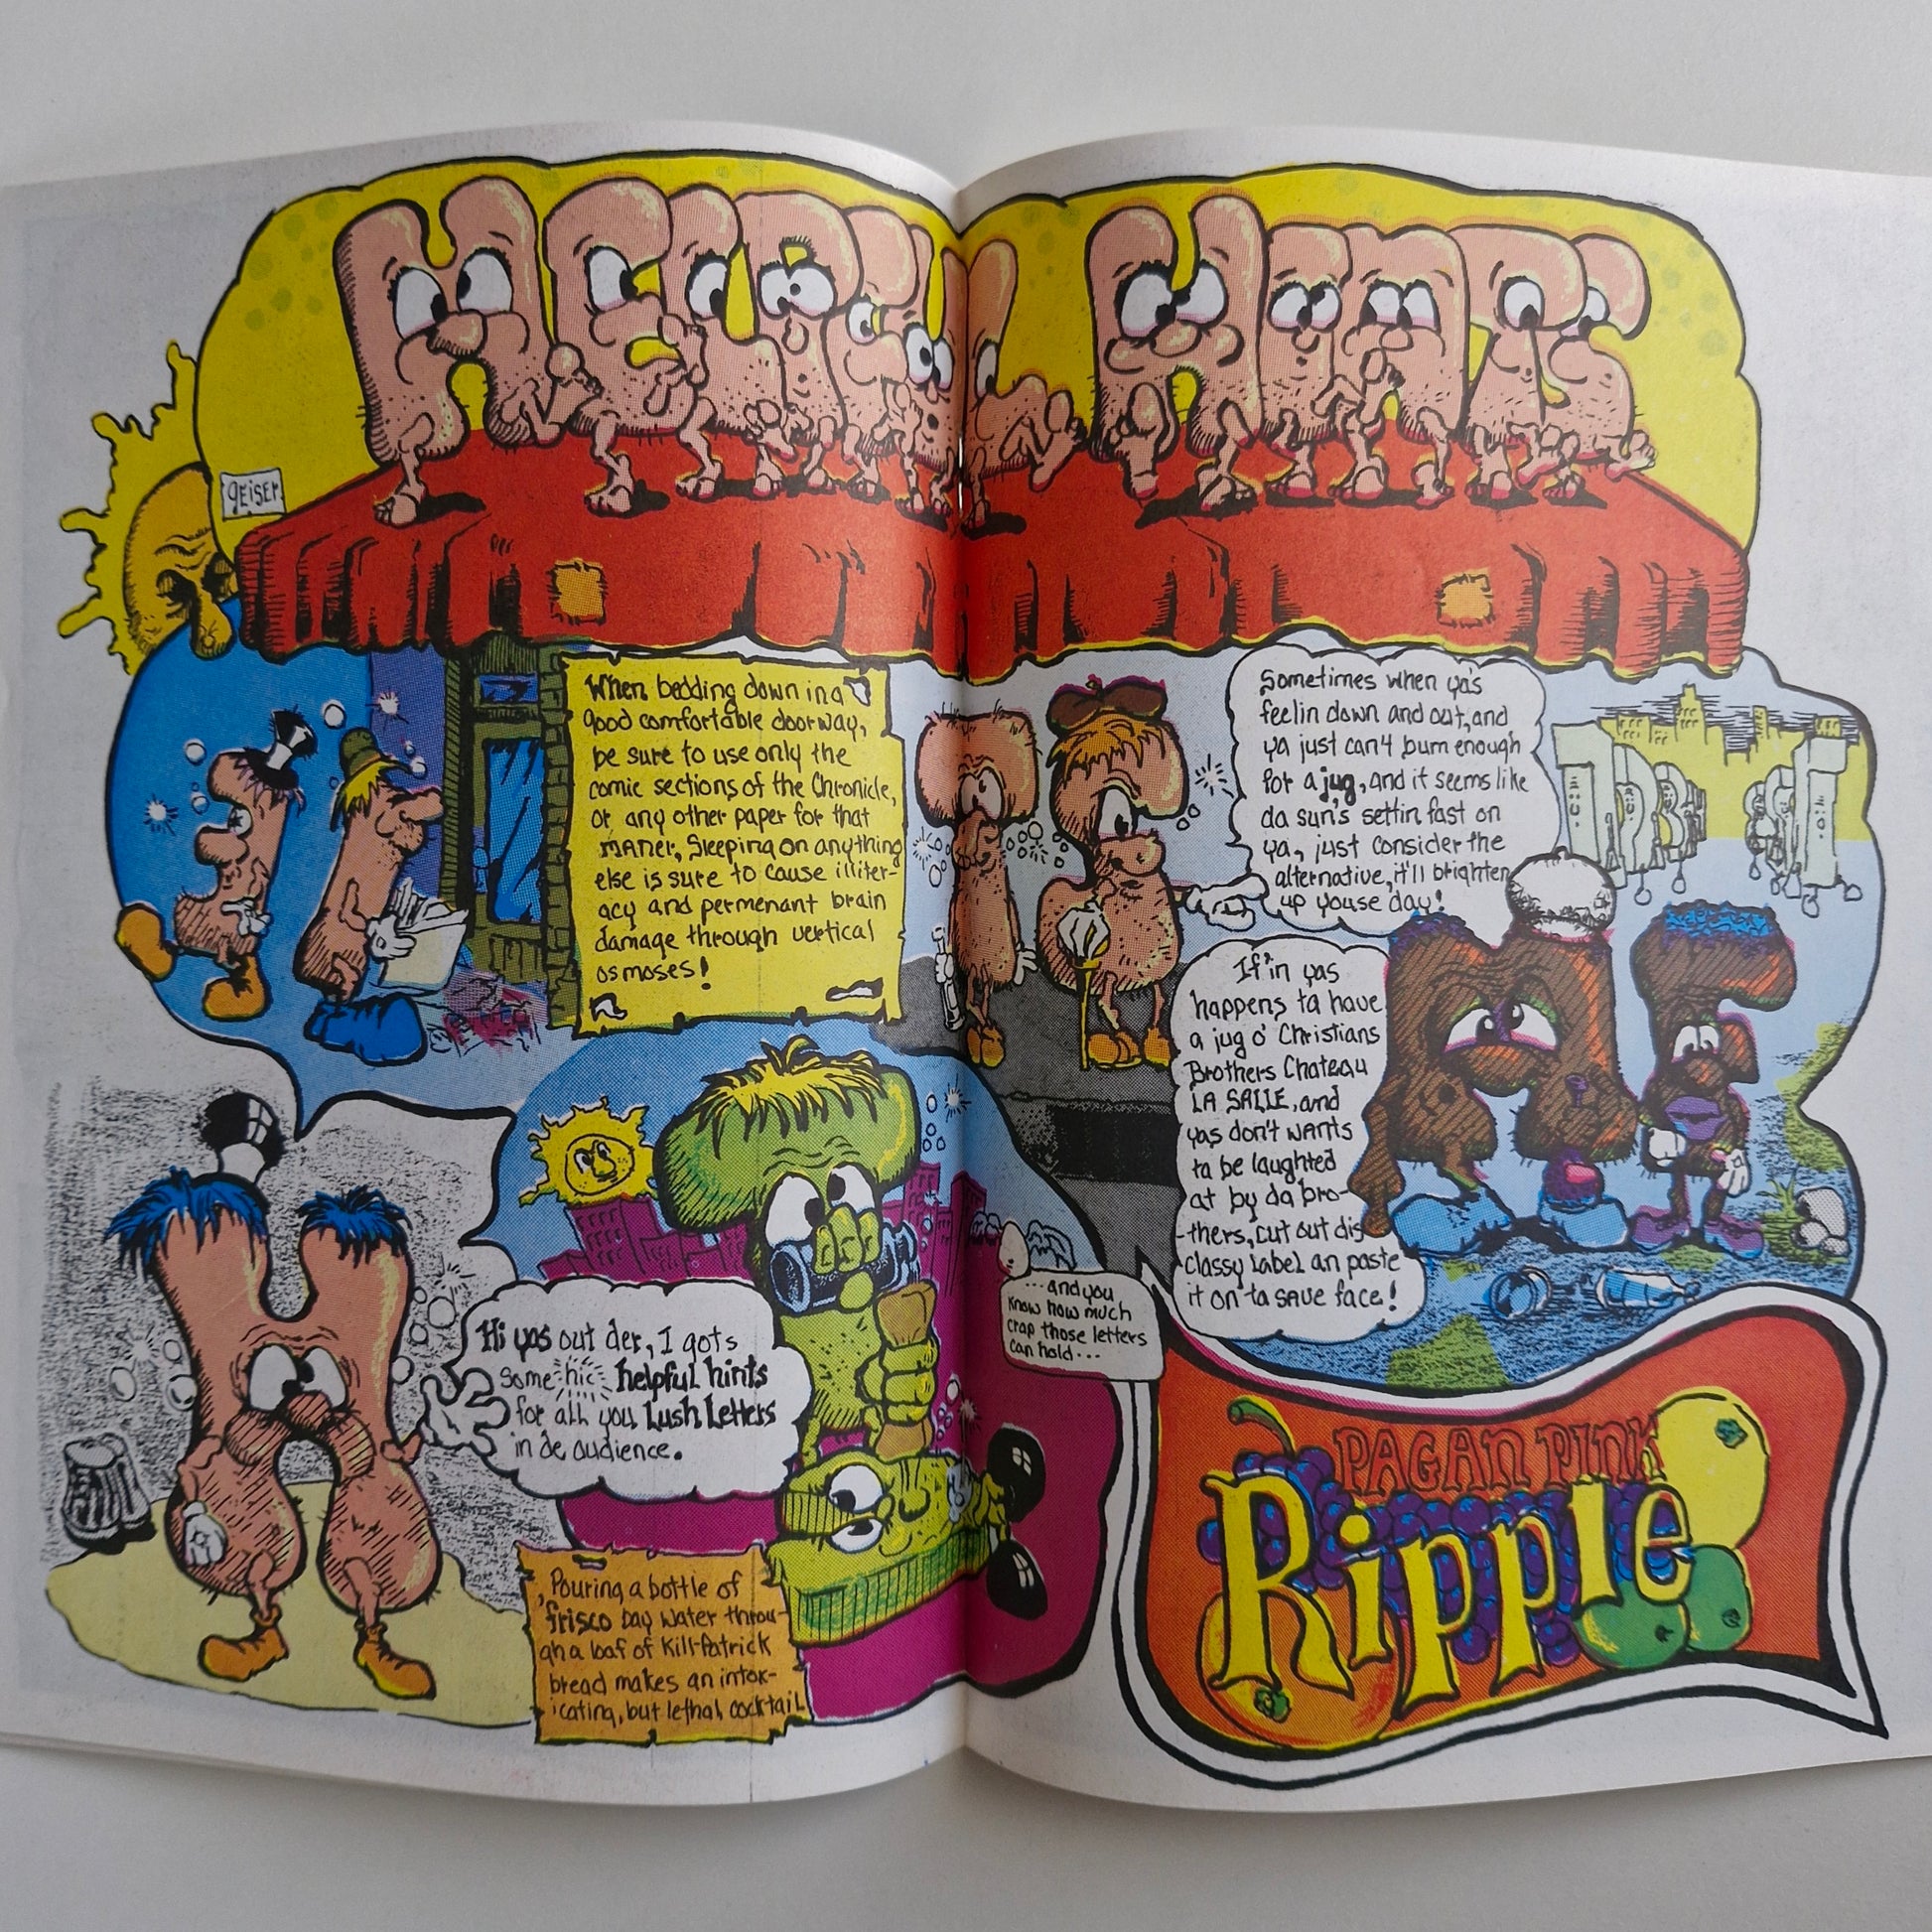 HELPFUL HINTS
GEISER
When bedding down in a
good comfortable doorway,
be sure to use only the
comic sections of the Chronicle,
or any other paper for that
maner, Sleeping on anything
else is sure to cause illiter-
acy and permenant brain
damage through vertical
osmoses!
Sometimes when ya's
feelin down and out, and
ya just can't bum enough
for a jug, and it seems like
da sun's settin fast on
ya, just consider the
alternative, it'll brighten
up youse day!
If'in yas
happens ta have
a jug o' Christians
Brothers Chateau
LA SALLE, and
yas don't wants
ta be laughted
at by da bro-
-thers, cut out dis
Classy Label an paste
it on ta save face!
Hi yas out der, I gots
some hic helpful hints
for all you Lush Letters
in de audience.
...and you
know how much
crap those letters
can hold...
Pouring a bottle of
frisco bay water throu-
gh a loaf of Kill-Patrick
bread makes an intox-
icating, but lethal cocktail
PAGAN PINK
Ripple